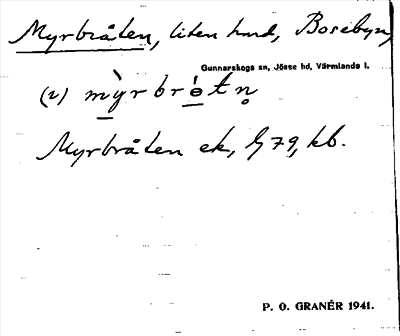 Myrbråten, liten hmd, Bosebyn,
Gunnarskogs sn, Jösse hd, Värmlands l.
(v) mỳrbrɵ́tn̥
Myrbråten ek, G 79, kb.
P. O. GRANÉR 1941.